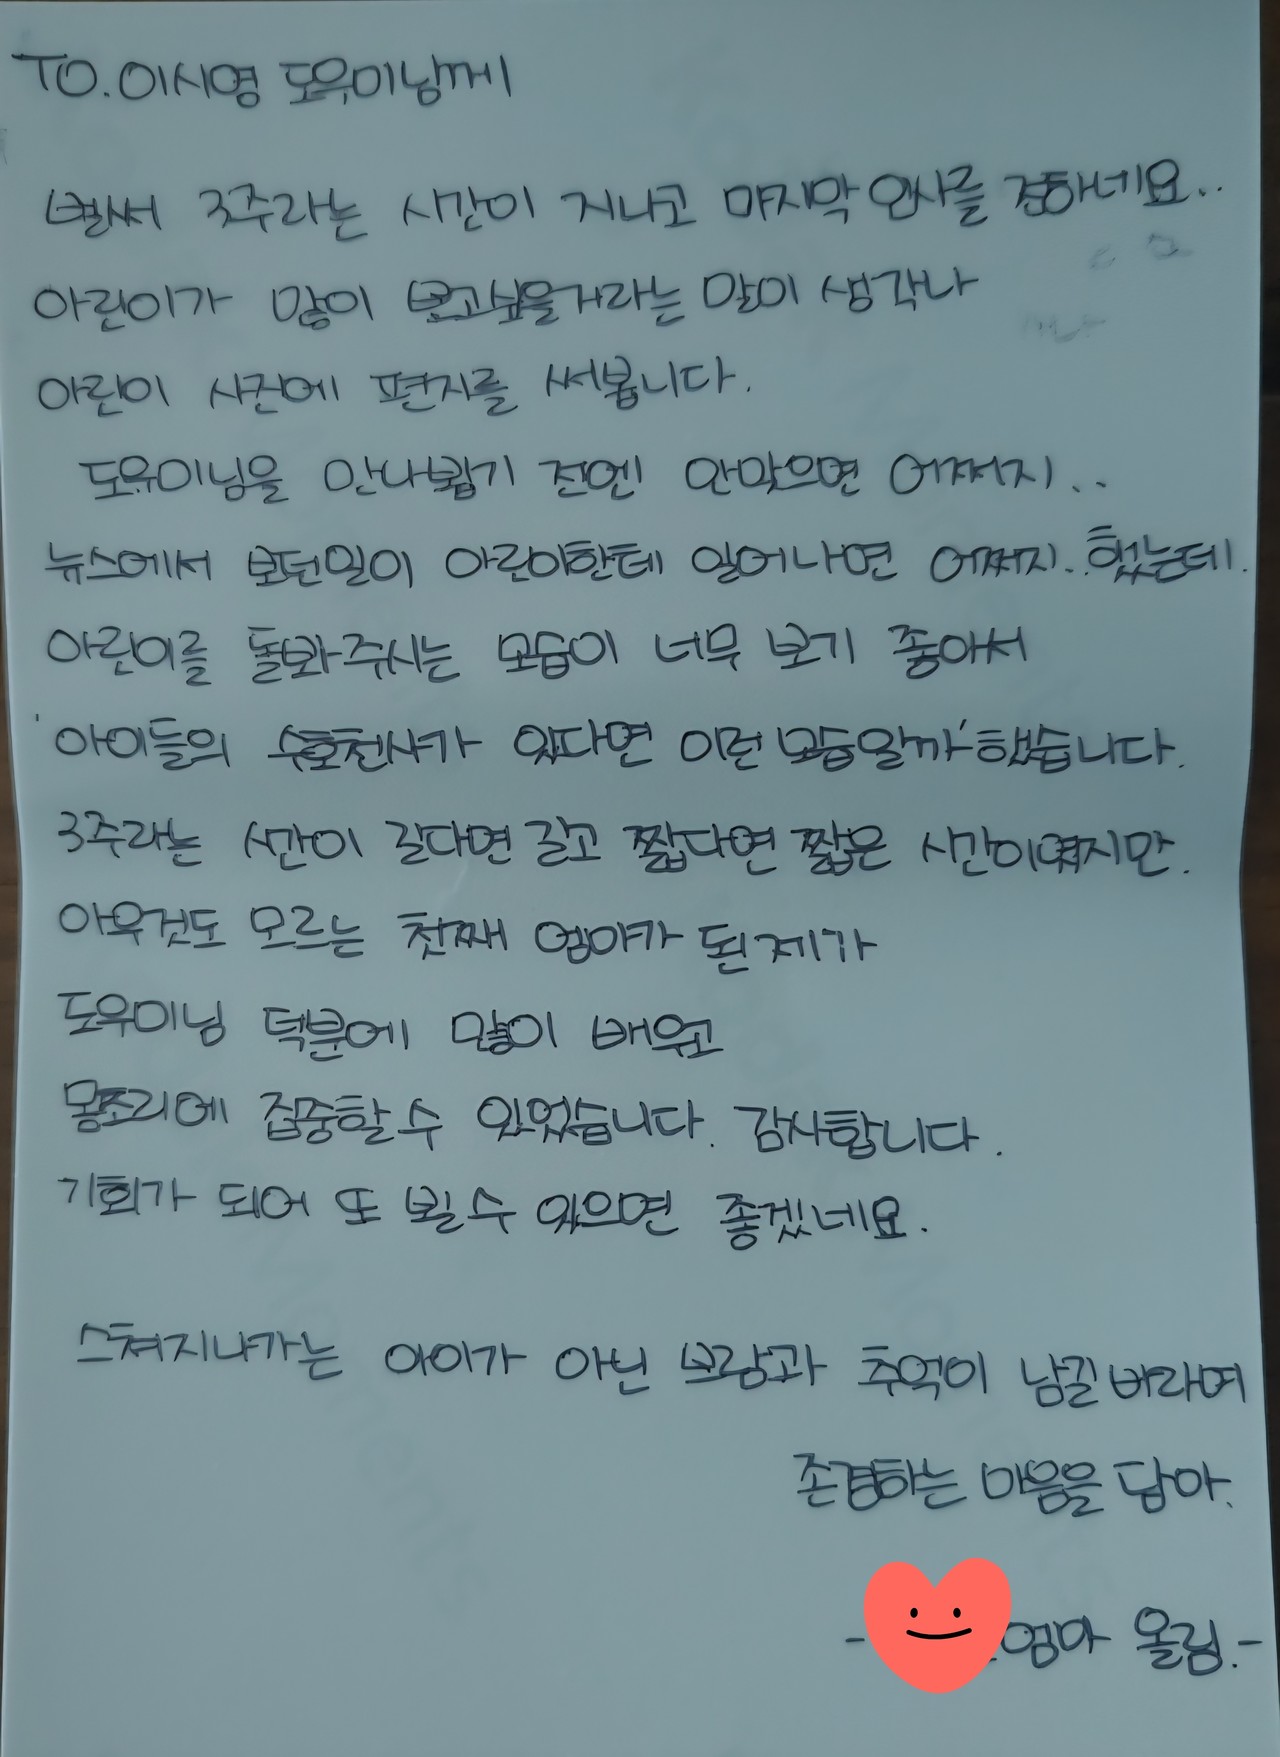 TO.이시영 도우미님께
벌써 3주라는 시간이 지나고 마지막 인사를 전하네요..
아린이가 많이 보고싶을거라는 말이 생각나
아린이 사진에 편지를 써봅니다.
도우미님을 만나뵙기 전엔 안맞으면 어쩌지..
뉴스에서 보던일이 아린이한테 일어나면 어쩌지..했는데.
아린이를 돌봐주시는 모습이 너무 보기 좋아서
'아이들의 수호천사가 있다면 이런 모습일까'했습니다.
3주라는 시간이 길다면 길고 짧다면 짧은 시간이였지만.
아무것도 모르는 첫째 엄마가 된 제가
도우미님 덕분에 많이 배우고
몸조리에 집중할 수 있었습니다. 감사합니다.
기회가 되어 또 뵐 수 있으면 좋겠네요.
스쳐지나가는 아이가 아닌 보람과 추억이 남길 바라며
존경하는 마음을 담아.
- 엄마 올림.-